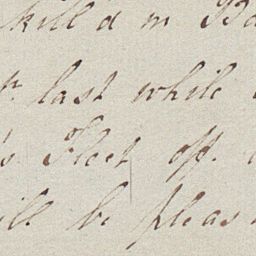 kill'd in Ba
r. last while
's Fleet off.
ill be pleas